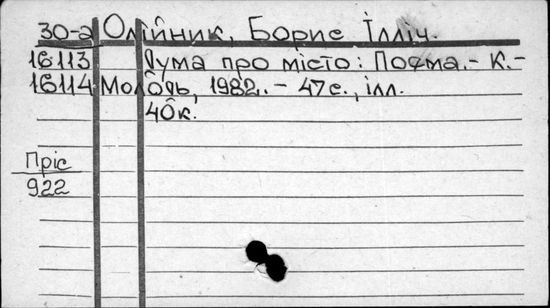 30-а Олійник, Борис Ілліч.
16113 Дума про місто: Поема.- К.-
16114 Молодь, 1982.- 47с., ілл.
40к.
Пріс
922